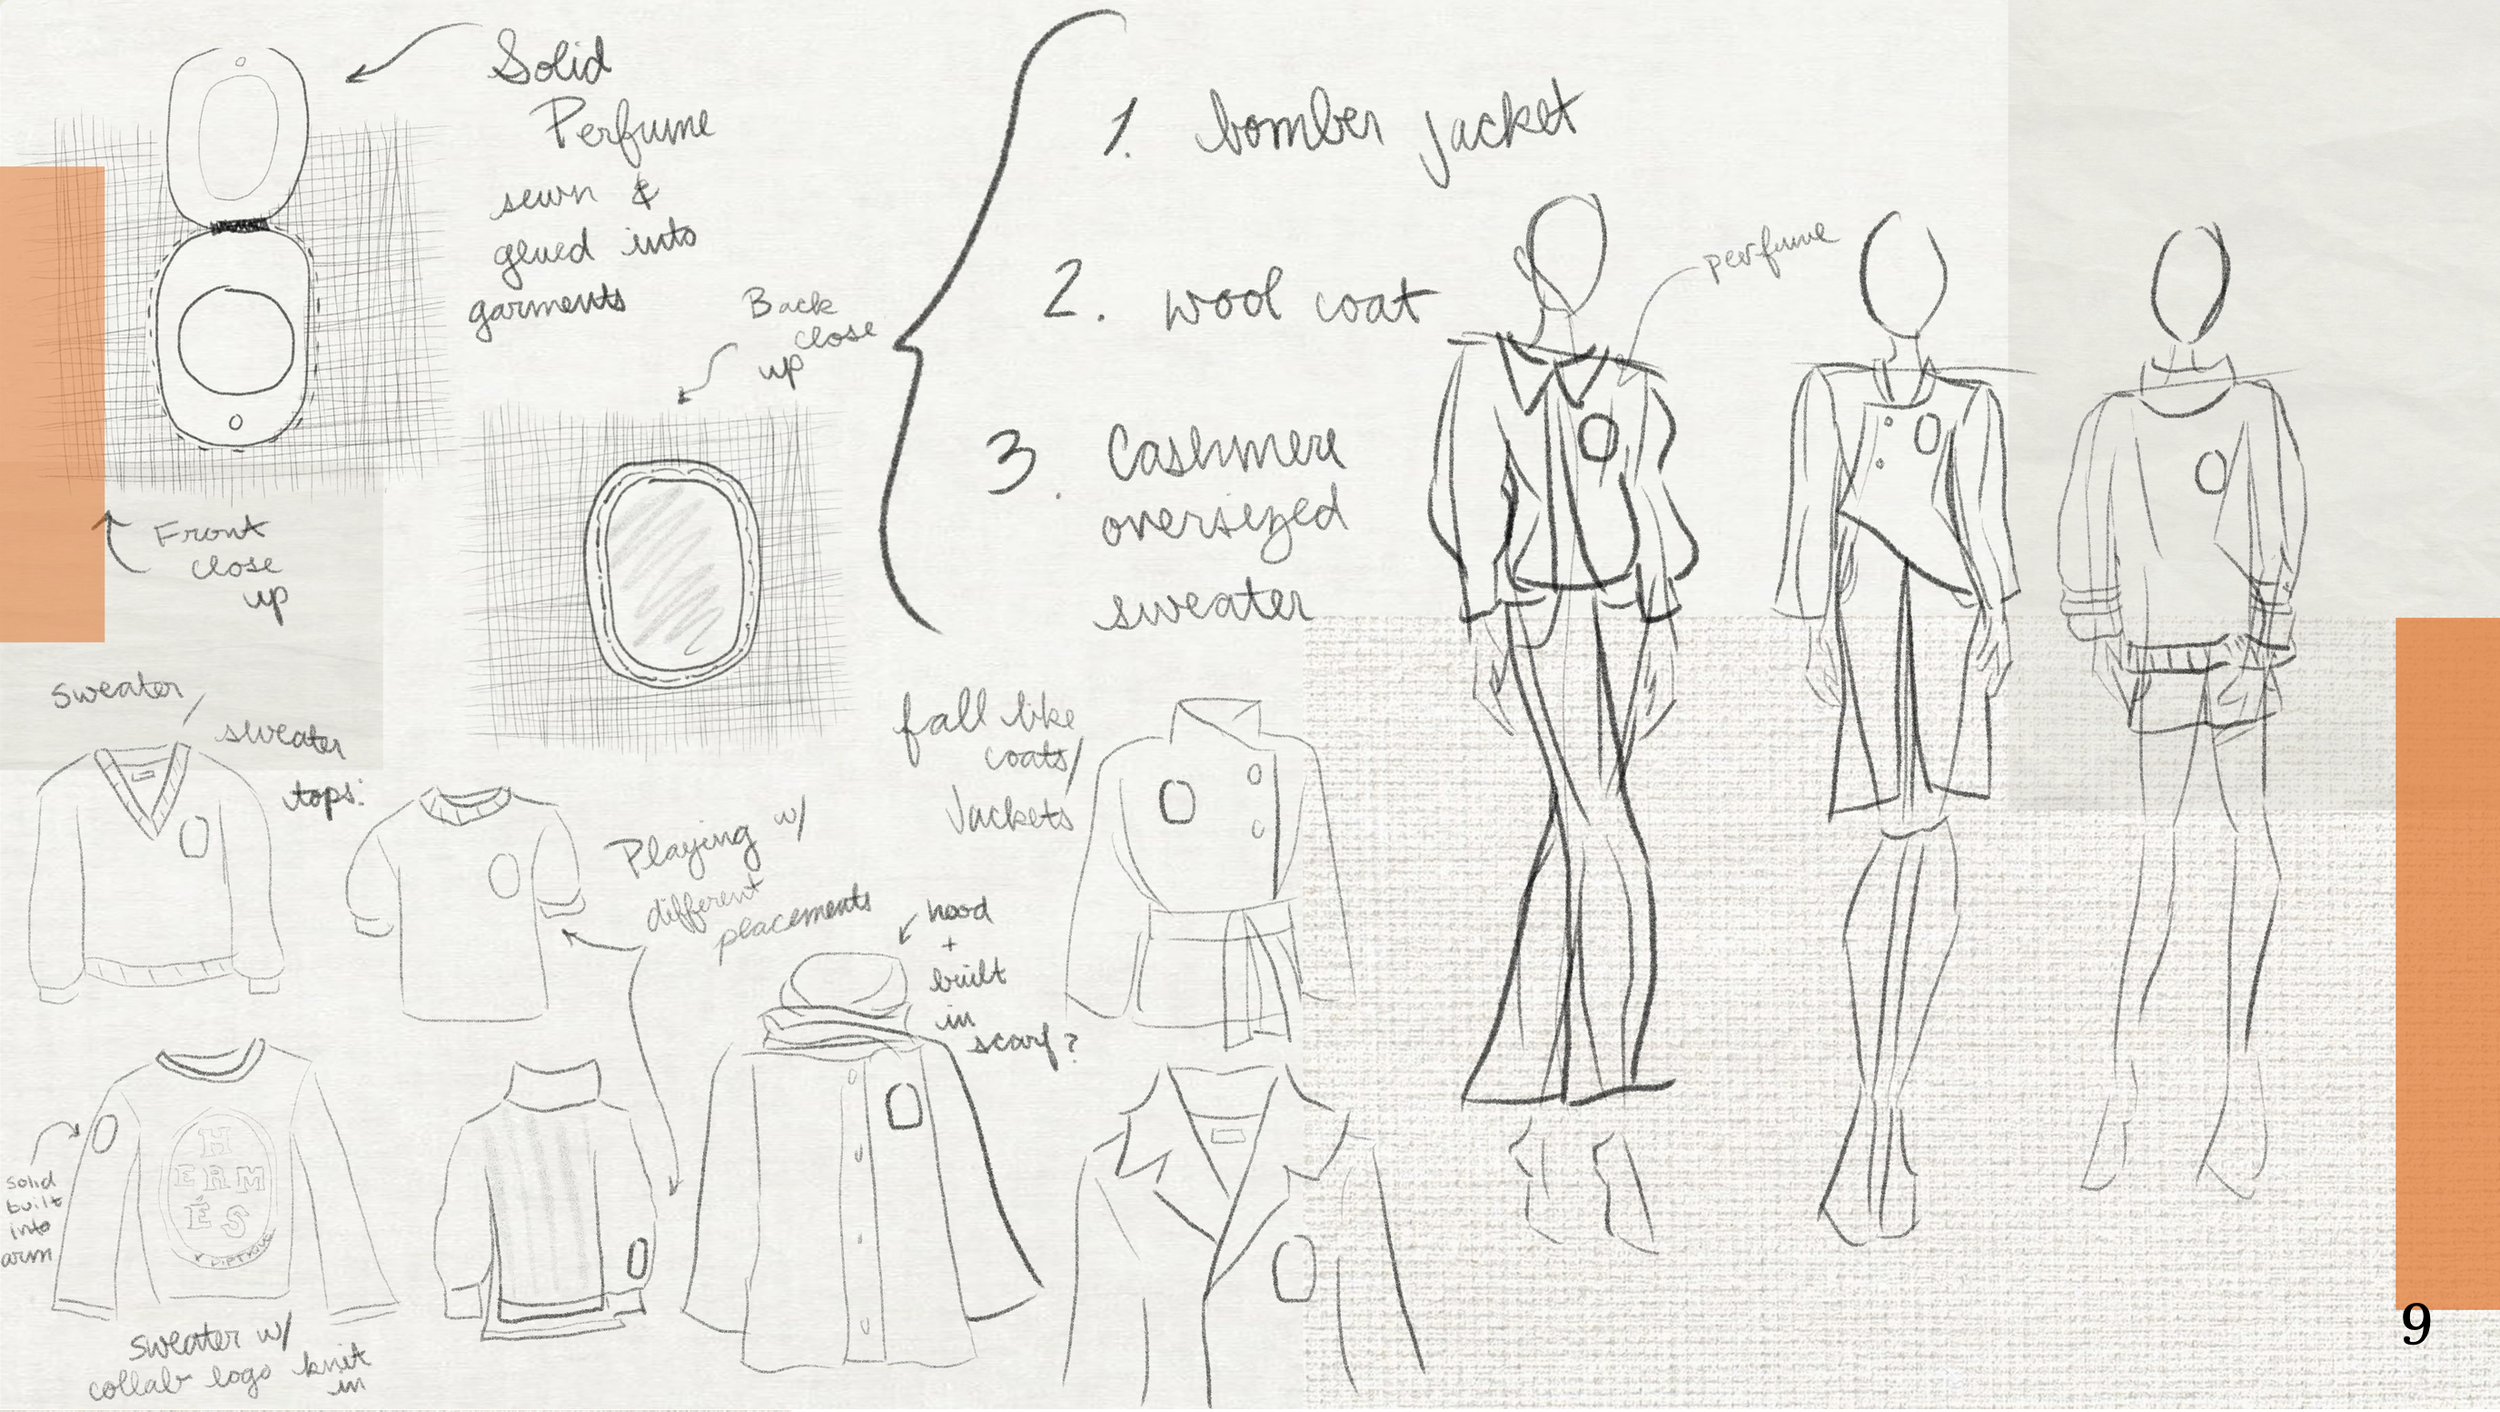 Solid
Perfume
sewn &
glued into
garments
Front
close
up
Back
close
up
1. bomber jacket
2. wool coat
3. Cashmere
oversized
sweater
perfume
sweater/
sweater
tops:
Playing w/
different
placements
fall like
coats/
Jackets
hood
+
built
in
scarf?
solid
built
into
arm
H
ERM
ÉS
x DIPTYQUE
sweater w/
collab logo knit
in
9